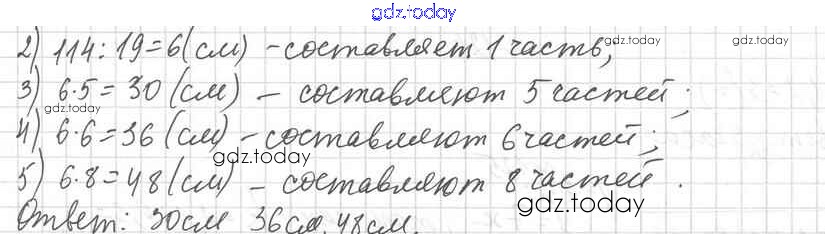 gdz.today
2) 114:19=6(см) – составляет 1 часть;
gdz.today gdz.today
3) 6·5=30(см) – составляют 5 частей;
gdz.today
4) 6·6=36(см) – составляют 6 частей;
gdz.today
5) 6·8=48(см) – составляют 8 частей.
gdz.today
Ответ: 30см 36см, 48см.